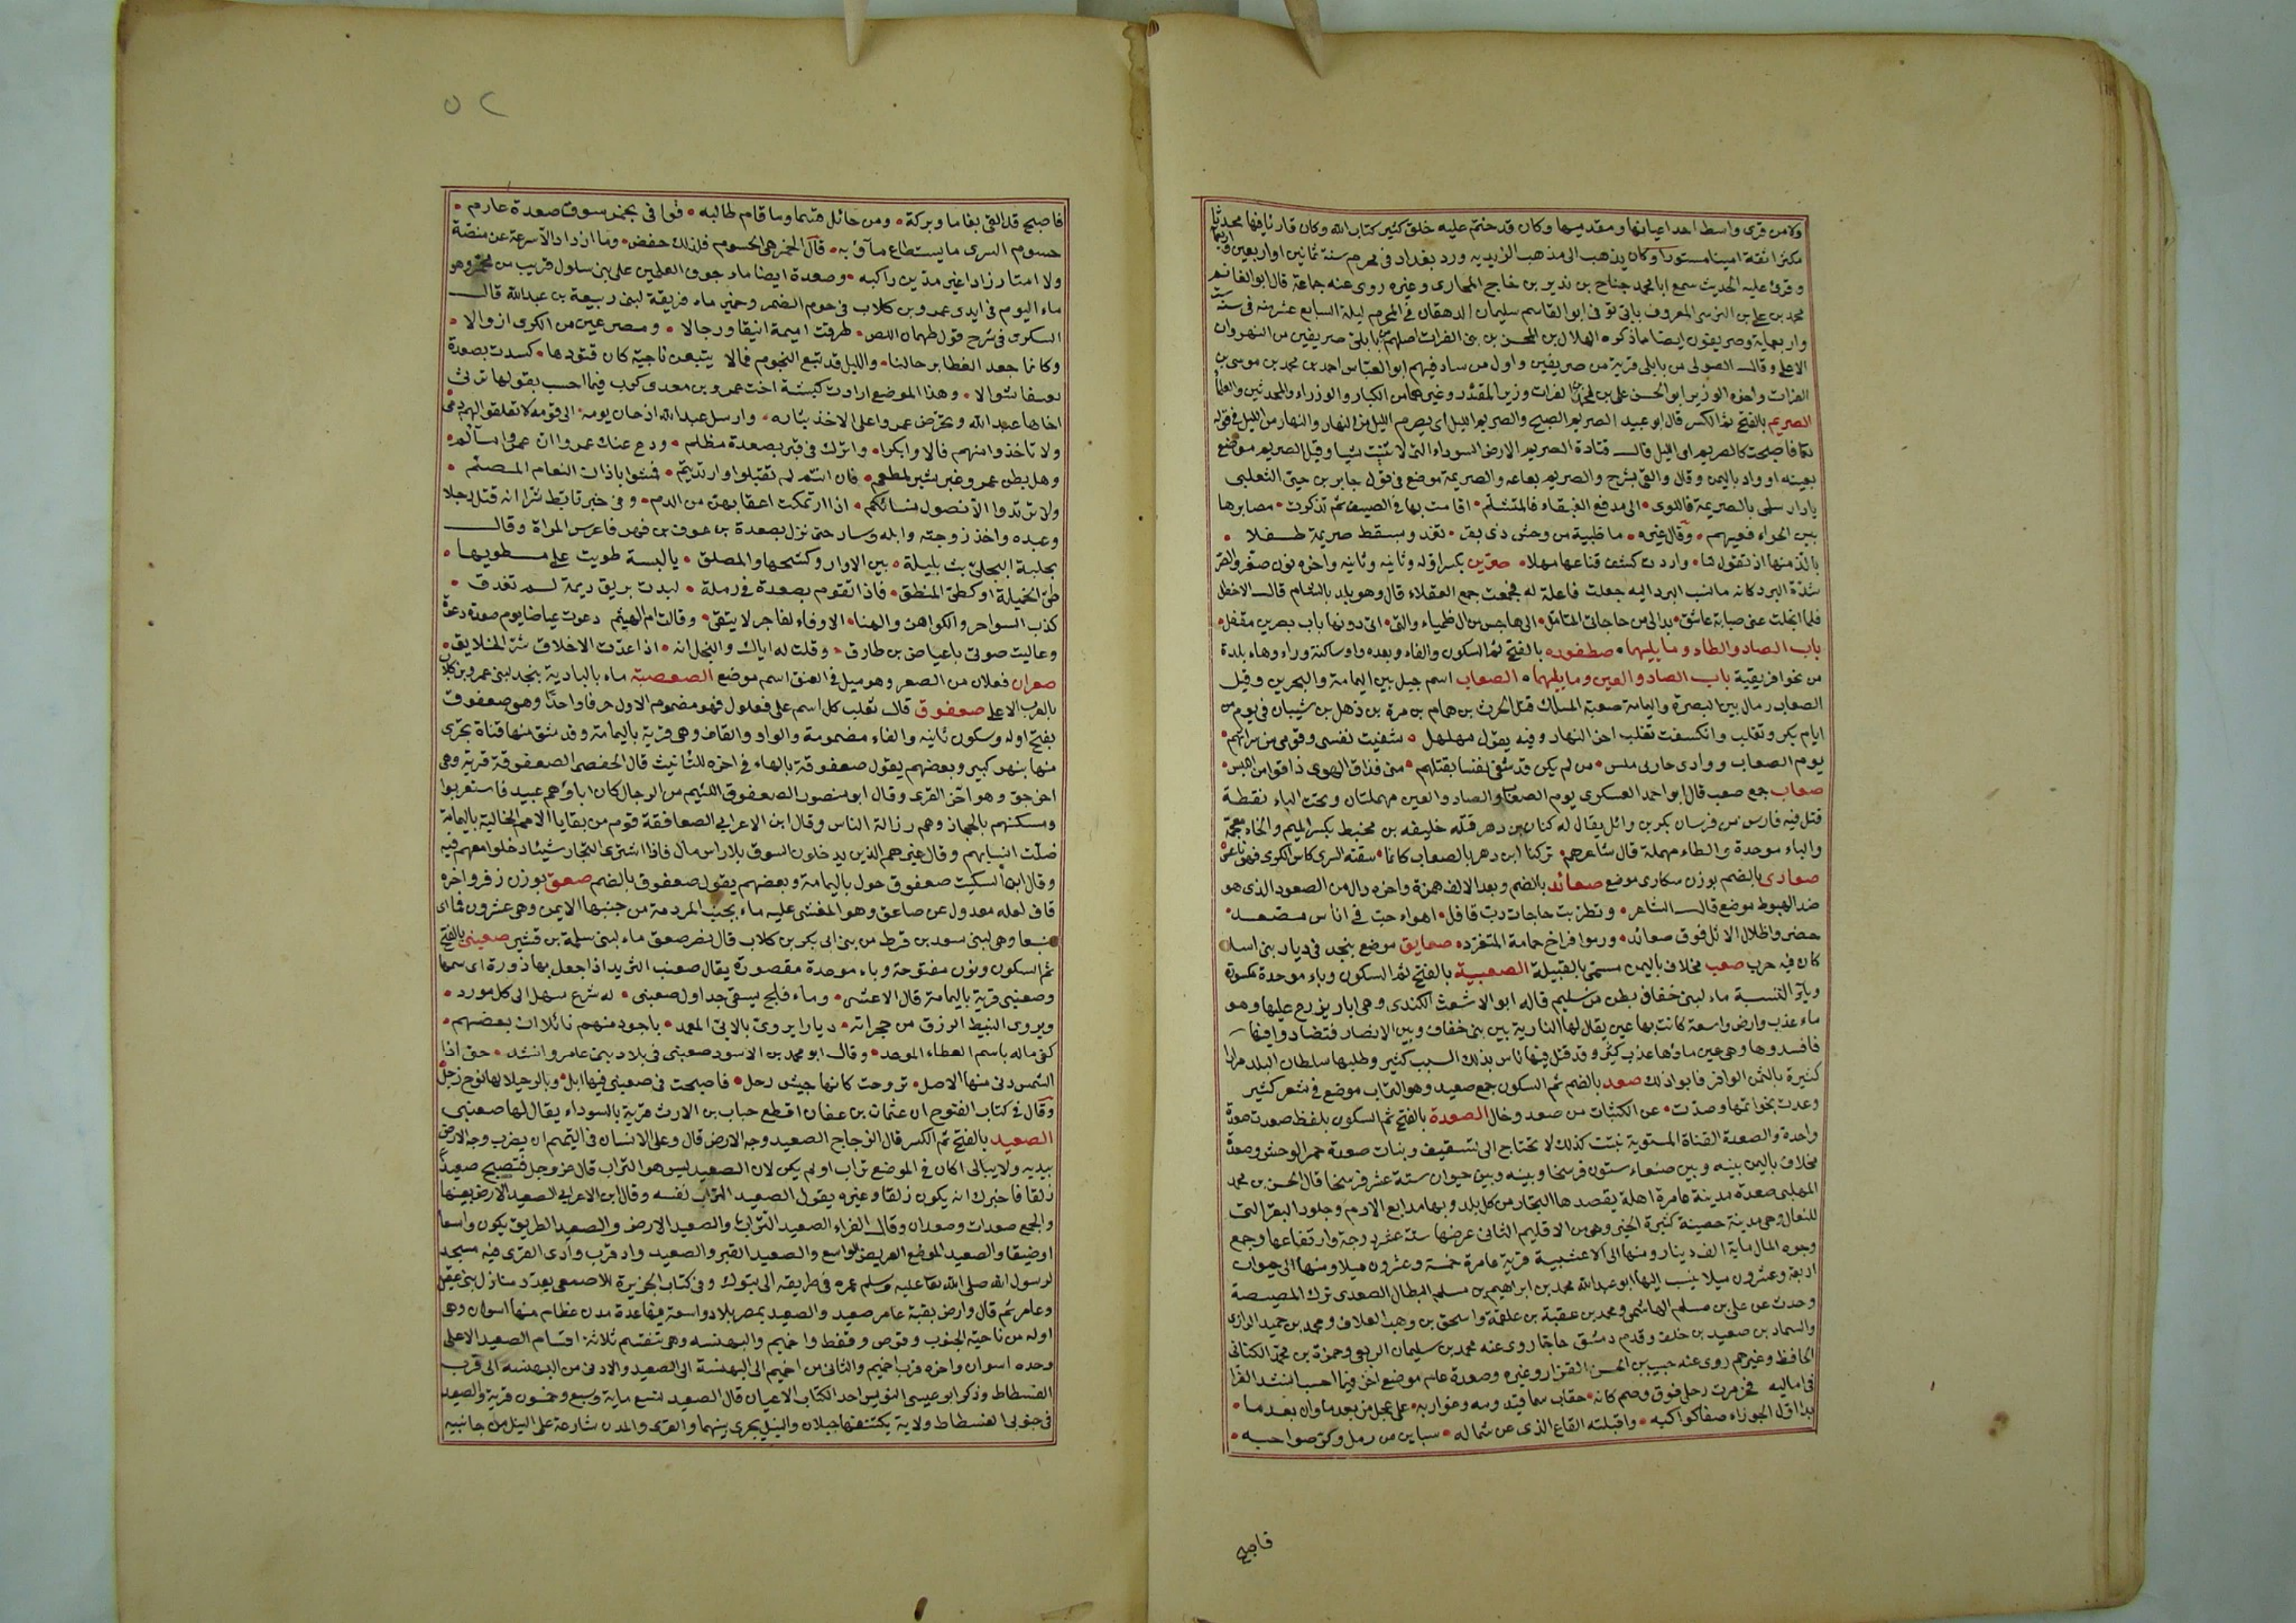 ولا من قرى واسط احد اعيانها ومقدميها وكان قد ختم عليه خلق كثير كتاب الله وكان قارئا فقها محدثا
مكثرا ثقة امينا مستورا وكان يذهب الى مذهب الزيديه ورد بغداد فى محرم سنة ثمانين او اربعين واربعمائة
وقرئ عليه الحديث سمع ابا محمد جناح بن نذير بن خاج المحاربى وغيره روى عنه جماعة قال ابو الغانم
محمد بن على بن النرسى المعروف بابى توفى ابو القاسم سليمان الدهقان فى المحرم ليلة السابع عشر منه فى سنة ست
واربعماية وصريفون ايضا ما ذكره الهلال بن المحسن بن بنى الفرات اصلهم من بابلى صريفين من النهروان
الاعلى وقال الصولى من بابلى قرية من صريفين واول من ساد فيهم ابو العباس احمد بن محمد بن موسى بن
الفرات واخوه الوزير ابو الحسن على بن محمد بن الفرات وزير المقتدر وغيرهما من الكبار والوزراء والمحدثين والعلما
الصريم بالفتح ثم الكسر قال ابو عبيد الصريم الصبح والصريم الليل اى يصرم الليل من النهار والنهار من الليل فى قوله
تعا فاصبحت كالصريم اى الليل قال قتادة الصريم الارض السوداء التى لا تنبت شيا وقيل الصريم موضع
بعينه او واد باليمن وقال والقى بشرج والصريم بعاعه والصريمة موضع فى قول جابر بن حنى التغلبى
يا دار سلمى بالصريمة فاللوى • الى مدفع القيقاء فالمتثلم • اقامت بها فى الصيف ثم تذكرت • مصايرها
بين الجواء فعيهم • وقال غيره • ما ظبية من وحش ذى بقر • تغذو بسقط صريمة طفلا •
بالذ منها اذ تقول لنا • واردت كشف قناعها مهلا • صرين بكسر اوله وثانيه وثانيه واخره نون صر والصر
شدة البرد كانه ما نسب البرد اليه جعلت فاعلة له فجمعت جمع العقلاء قال وهو بلد بالشام قال الاخطل
فلما انجلت عنى صبابة عاشق • بدا لى من حاجاتى المتامل • الى هاجس من ال ظمياء والتى • اتى دونها باب بصرين مقفل •
باب الصاد والطاء وما يليهما • صطفوره بالفتح ثم السكون والفاء وبعده واو ساكنة وراء وهاء بلدة
من نحو افريقية باب الصاد والعين وما يليهما • الصعاب اسم جبل بين اليمامة والبحرين وقيل
الصعاب رمال بين البصرة واليمامة صعبة المسالك قتل الحرث بن همام بن مرة بن ذهل بن شيبان فى يوم من
ايام بكر وتغلب وانكسفت تغلب اخر النهار وفيه يقول مهلهل • شفيت نفسى وقومى من سراتهم •
يوم الصعاب ووادى حاربى ماس • من لم يكن قد شفى نفسا بقتلهم • منى فذاق الهوى ذاقوا من الباس •
صعاب جمع صعب قال ابو احمد العسكرى يوم الصعاب والصاد والعين مهملتان وتحت الباء نقطة
قتل فيه فارس من فرسان بكر بن وائل يقال له كنان بن دهر قتله خليفه بن مخبط بكسر الميم والخاء معجمة
والباء موحدة والطاء مهملة قال شاعرهم • تركنا ابن دهر بالصعاب كانما • سقته السرى كاس الكرى فهو ناعس
صعادى بالضم بوزن سكارى موضع صعائد بالضم وبعد الالف همزة واخره دال من الصعود الذى هو
ضد الهبوط موضع قال الشاعر • وتطربت حاجات دب قافل • اهواء حب فى اناس مصعد •
حضروا ظلال الاثل فوق صعائد • ورموا فراخ حمامة المتغرد • صعايق موضع بنجد فى ديار بنى اسد
كان فيه حرب صعب مخلاف باليمن مسمى بالقبيلة الصعبية بالفتح ثم السكون وباء موحدة مكسورة
وياء النسبة ماء لبنى خفاف بطن من سليم قاله ابو الاشعث الكندى وهى ابار يزرع عليها وهو
ماء عذب وارض واسعة كانت بها عين يقال لها النازية بين بنى خفاف وبين الانصار فتضادوا فيها
فافسدوها وهى عين ماؤها عذب كثير وقد قتل فيها ناس بذلك السبب كثير وطلبها سلطان البلد مرارا
كثيرة بالثمن الوافر فابوا ذلك صعد بالضم ثم السكون جمع صعيد وهو التراب موضع فى شعر كثير
وعدت نحو ايمنها وصدت • عن الكثبان من صعد وخال الصعدة بالفتح ثم السكون بلفظ صعدت صعدة
واحدة والصعدة القناة المستوية نبتت كذلك لا تحتاج الى تثقيف وبنات صعدة حمر الوحش وصعدة
مخلاف باليمن بينه وبين صنعاء ستون فرسخا وبينه وبين خيوان ستة عشر فرسخا قال الحسن بن محمد
المهلبى صعدة مدينة عامرة اهلة يقصدها التجار من كل بلد وبها مدابع الادم وجلود البقر التى
للنعال وهى مدينة حصينة كثيرة الخير وهى من الاقليم الثانى عرضها ستة عشر درجة وارتفاعها وجمع
وجوه المال ماية الف دينار ومنها الى الاعشبية قرية عامرة خمسة وعشرون ميلا ومنها الى خيوان
اربعة وعشرون ميلا ينسب اليها ابو عبد الله محمد بن ابراهيم بن مسلم البطال الصعدى نزل المصيصة
وحدث عن على بن مسلم الهاشمى ومحمد بن عقبة بن علقمة واسحق بن وهب العلاف ومحمد بن حميد الرازى
والسماد بن صعيد بن خلف وقدم دمشق حاجا روى عنه محمد بن سليمان الربعى وحمزة بن محمد الكنانى
الحافظ وغيرهم روى عنه حبيب بن الحسن القزاز وغيره وصعدة عام موضع اخر فيما احسب انشد الفرا
فى اماليه فخرمرت رحلى فوق وصم كانه • حقاب سما قيدومه وغواربه • على عجل من بعد ما وان بعد ما •
بدا اول الجوزاء صفا كواكبه • واقبلته القاع الذى عن شماله • سباين من رمل وكر صواحبه •
فاصبح
٥٢
فاصبح قد القى بغاما وبركة • ومن حائل قسما وما قام طالبه • فوافى بخمر سوق صعدة عارم •
حسوم السرى ما يستطاع مآوبه • قال الخمر هى الحسوم فلذلك خفض • وما ازداد الا سرعة عن منصة
ولا امتار زادا غير مدين راكبه • وصعدة ايضا ماء جوف العلمين علمى بنى سلول قريب من مخمر وهو
ماء اليوم فى ايدى عمرو بن كلاب فى جوم الضمر وحمير ماء فريقة لبنى ربيعة بن عبد الله قال
السكرى فى شرح قول طهمان اللص • طرقت اميمة اينقا ورحالا • ومصرعين من الكرى ازوالا •
وكانما جعد القطا برحالنا • والليل قد تبع النجوم فمالا يتبعن ناجية كان قتودها • كسدت بصعدة
نعسفا شوالا • وهذا الموضع ارادت كبشة اخت عمرو بن معدى كرب فيما احسب بقولها ترثى
اخاها عبد الله وتحرض عمروا على الاخذ بثاره • وارسل عبد الله اذ حان يومه • الى قومه لا تعقلوا لهم دمى
ولا تاخذوا منهم فالا وابكرا • واترك فى قبر بصعدة مظلم • ودع عنك عمروا ان عمروا مسالم •
وهل بطن عمرو غير شبر لمطعم • فان انتم لم تقتلوا واتديتم • فمشوا باذان النعام المصلم •
ولا تردوا الا فضول نسائكم • اذا ارتملت اعقابهن من الدم • وفى خبر تابط شرا انه قتل رجلا
وعبده واخذ زوجته وابله وسار حتى نزل بصعدة بن عوف بن فهر فاعرس المراة وقال
بحليلة البجلى بت بليلة • بين الازار وكشحها والملصق • يا لبسة طويت على مطويها •
طى الحميلة او كطى المنطق • فاذا تقوم بصعدة فى رملة • لبدت بريق ديمة لم تغدق •
كذب السواحر والكواهن والهنا • الا وفاء لفاجر لا يتقى • وقالت ام الهيثم دعوت عياضا يوم صعدة دعوة
وعاليت صوتى يا عياض بن طارق • وقلت له اياك والبخل انه • اذا عدت الاخلاق شر الخلايق •
صعران فعلان من الصعر وهو ميل فى العنق اسم موضع الصعصعية ماء بالبادية بنجد لبنى عمرو بن كلاب
بالعرف الاعلى صعفوق قال ثعلب كل اسم على فعلول فهو مضموم الاول حرفا واحدا وهو صعفوق
بفتح اوله وسكون ثانيه والفاء مضمومة والواو والقاف وهى قرية باليمامة وقد شق منها قناة تجرى
منها بنهر كبير وبعضهم يقول صعفوقة بالهاء فى اخره للتانيث قال الحفصى الصعفوقة قرية وهى
اخر جو وهو اخر القرى وقال ابو منصور الصعفوق اللئيم من الرجال كان اباؤهم عبيد فاستعربوا
ومسكنهم بالحجاز وهم رزالة الناس وقال ابن الاعرابى الصعافقة قوم من بقايا الامم الخالية باليمامة
ضلت انسابهم وقال غيره هم الذين يدخلون السوق بلا راس مال فاذا اشترى التجار شيئا دخلوا معهم فيه
وقال ابن السكيت صعفوق حول باليمامة وبعضهم يقول صعفوق بالضم صعق بوزن زفر واخره
قاف لعله معدول عن صاعق وهو المغشى عليه ماء بجنب المردمة من جنبها الايمن وهى عشرون فما اى
منبعا وهى لبنى سعد بن قرط من بنى ابى بكر بن كلاب قال نصر صعق ماء لبنى سلمة بن قشير صعنبى بالفتح
ثم السكون ونون مفتوحة وباء موحدة مقصورة يقال صعنب الثريد اذا جعل بها ذروة اى سمها
وصعنبى قرية باليمامة قال الاعشى • وماء فلج يسقى جداول صعنبى • له شرع سهل الى كل مورد •
ويروى النبيط الزرق من حجراته • ديارا يروى بالاتى المعمد • باجود منهم نائلا ان بعضهم •
كفى ماله باسم العطاء الموعد • وقال ابو محمد بن الاسود صعنبى فى بلاد بنى عامر وانشد • حتى اذا
الشمس دنى منها الاصل • تروحت كانها جيش رحل • فاصبحت فى صعنبى فيها ابل • وبالرحيلا لها نوح زجل
وقال فى كتاب الفتوح ان عثمان بن عفان اقطع خباب بن الارت قرية بالسوداء يقال لها صعنبى
الصعيد بالفتح ثم الكسر قال الزجاج الصعيد وجه الارض قال وعلى الانسان فى التيمم ان يضرب وجه الارض
بيديه ولا يبالى اكان فى الموضع تراب او لم يكن لان الصعيد ليس هو التراب قال عز وجل فتصبح صعيدا
زلقا فاخبرك انه يكون زلقا وغيره يقول الصعيد التراب نفسه وقال ابن الاعرابى الصعيد الارض بعينها
والجمع صعدات وصعدان وقال الفراء الصعيد التراب والصعيد الارض والصعيد الطريق يكون واسعا
او ضيقا والصعيد الموضع العريض الواسع والصعيد القبر والصعيد واد قرب وادى القرى فيه مسجد
لرسول الله صلى الله تعا عليه وسلم عمره فى طريقه الى تبوك وفى كتاب الجزيرة للاصمعى يعدد منازل بنى عقيل
وعامر ثم قال وارض بقية عامر صعيد والصعيد بمصر بلاد واسعة فيها عدة مدن عظام منها اسوان وهى
اوله من ناحية الجنوب وقوص وقفط واخميم والبهنسه وهى تنقسم ثلاثة اقسام الصعيد الاعلى
وحده اسوان واخره قرب اخميم والثانى من اخميم الى البهنسة الى الصعيد والادنى من البهنسه الى قرب
الفسطاط وذكر ابو عيسى النويس احد الكتاب الاعيان قال الصعيد تسع ماية وسبع وخمسون قرية والصعيد
فى جنوبى الفسطاط ولاية يكتنفها جبلان والنيل يجرى بينهما والقرى والمدن شارعة على النيل من جانبيه